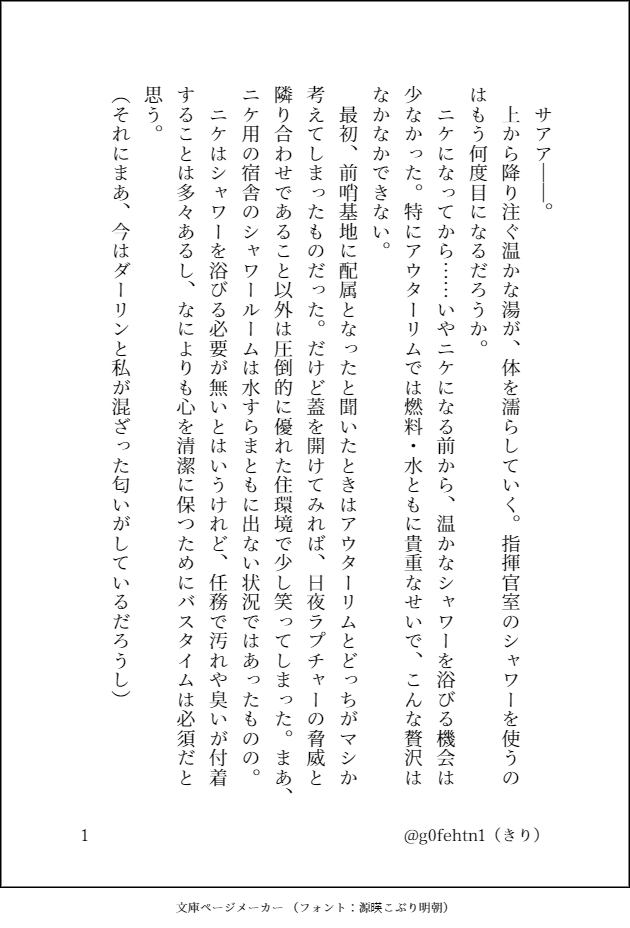 サアア――。
上から降り注ぐ温かな湯が、体を濡らしていく。指揮官室のシャワーを使うの
はもう何度目になるだろうか。
ニケになってから……いやニケになる前から、温かなシャワーを浴びる機会は
少なかった。特にアウターリムでは燃料・水ともに貴重なせいで、こんな贅沢は
なかなかできない。
最初、前哨基地に配属となったと聞いたときはアウターリムとどっちがマシか
考えてしまったものだった。だけど蓋を開けてみれば、日夜ラプチャーの脅威と
隣り合わせであること以外は圧倒的に優れた住環境で少し笑ってしまった。まあ、
ニケ用の宿舎のシャワールームは水すらまともに出ない状況ではあったものの。
ニケはシャワーを浴びる必要が無いとはいうけれど、任務で汚れや臭いが付着
することは多々あるし、なによりも心を清潔に保つためにバスタイムは必須だと
思う。
（それにまあ、今はダーリンと私が混ざった匂いがしているだろうし）
1
@g0fehtn1（きり）
文庫ページメーカー（フォント：源暎こぶり明朝）